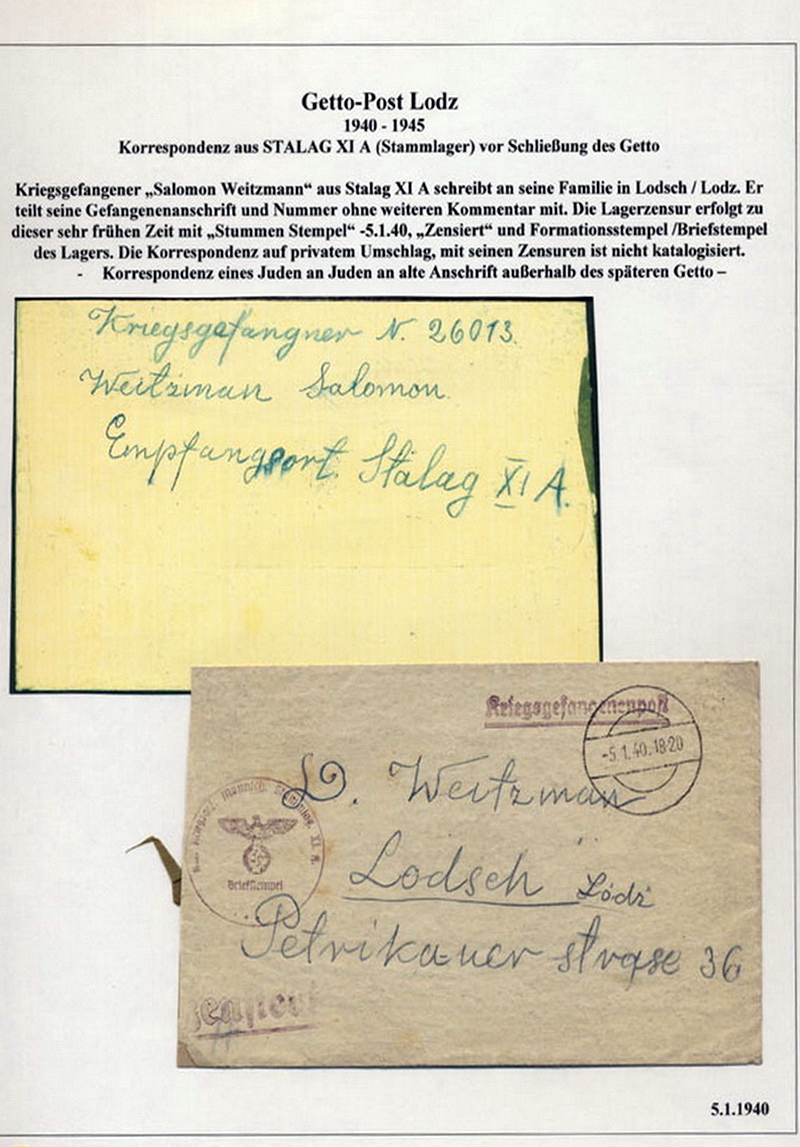 Getto-Post Lodz
1940 - 1945
Korrespondenz aus STALAG XI A (Stammlager) vor Schließung des Getto
Kriegsgefangener „Salomon Weitzmann“ aus Stalag XI A schreibt an seine Familie in Lodsch / Lodz. Er
teilt seine Gefangenenanschrift und Nummer ohne weiteren Kommentar mit. Die Lagerzensur erfolgt zu
dieser sehr frühen Zeit mit „Stummen Stempel“ -5.1.40, „Zensiert“ und Formationsstempel /Briefstempel
des Lagers. Die Korrespondenz auf privatem Umschlag, mit seinen Zensuren ist nicht katalogisiert.
- Korrespondenz eines Juden an Juden an alte Anschrift außerhalb des späteren Getto –
Kriegsgefangner N. 26013.
Weitzman Salomon.
Empfangsort. Stalag XI A.
Kriegsgefangenenpost
-5.1.40.18-20
D. Weitzman
Briefstempel
Lodsch Łódź
Petrikauer strase 36
5.1.1940